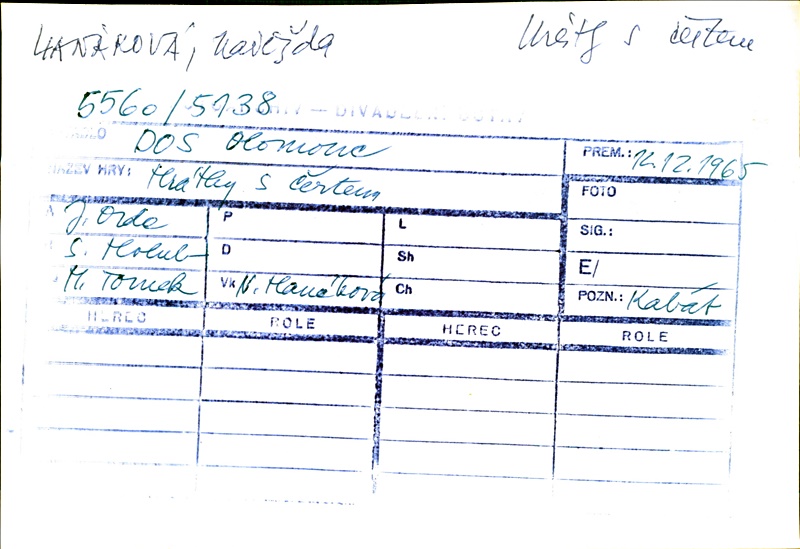 HANÁKOVÁ, Naděžda
Hrátky s čertem
5560/5138
— DIVADELNÍ
DOS Olomouc
PREM.: 12.12.1965
NÁZEV HRY: Hrátky s čertem
FOTO
J. Orda P L SIG.:
S. Holub D Sh E/
M. Tomek Vk N. Hanáková Ch POZN.: Kabát
HEREC ROLE HEREC ROLE